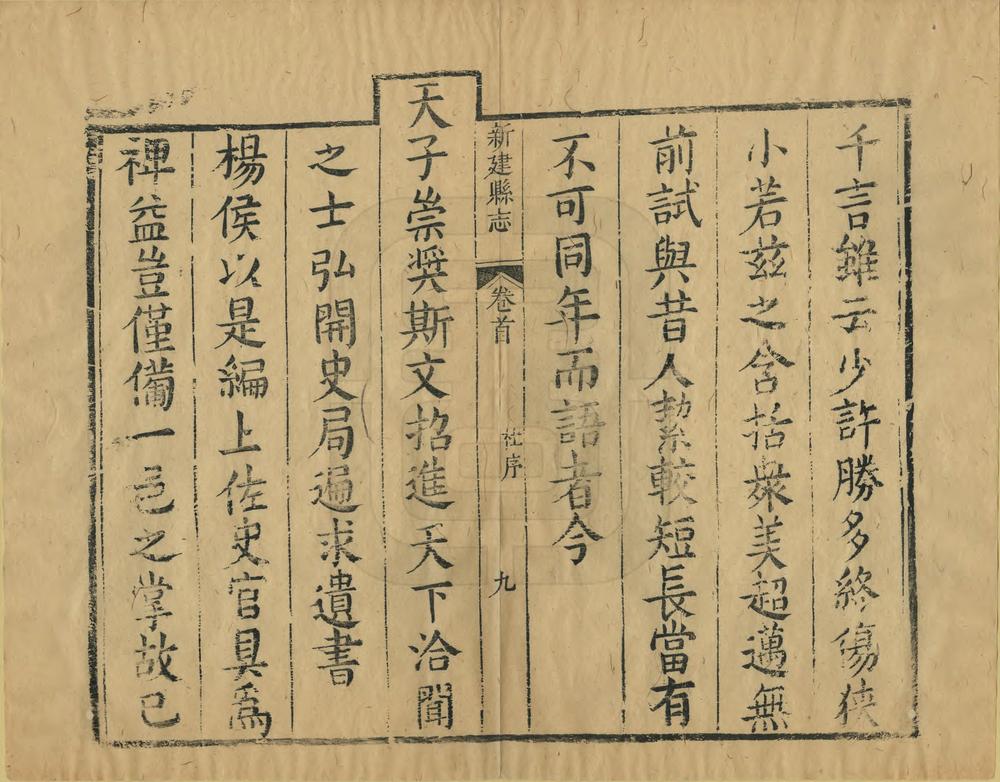 千言雖云少許勝多終傷狹
小若茲之含括衆美超邁無
前試與昔人絜較短長當有
不可同年而語者今
新建縣志 卷首 杜序 九
天子崇奬斯文招進天下洽聞
之士弘開史局遍求遺書
楊侯以是編上佐史官具爲
裨益豈僅備一邑之掌故已